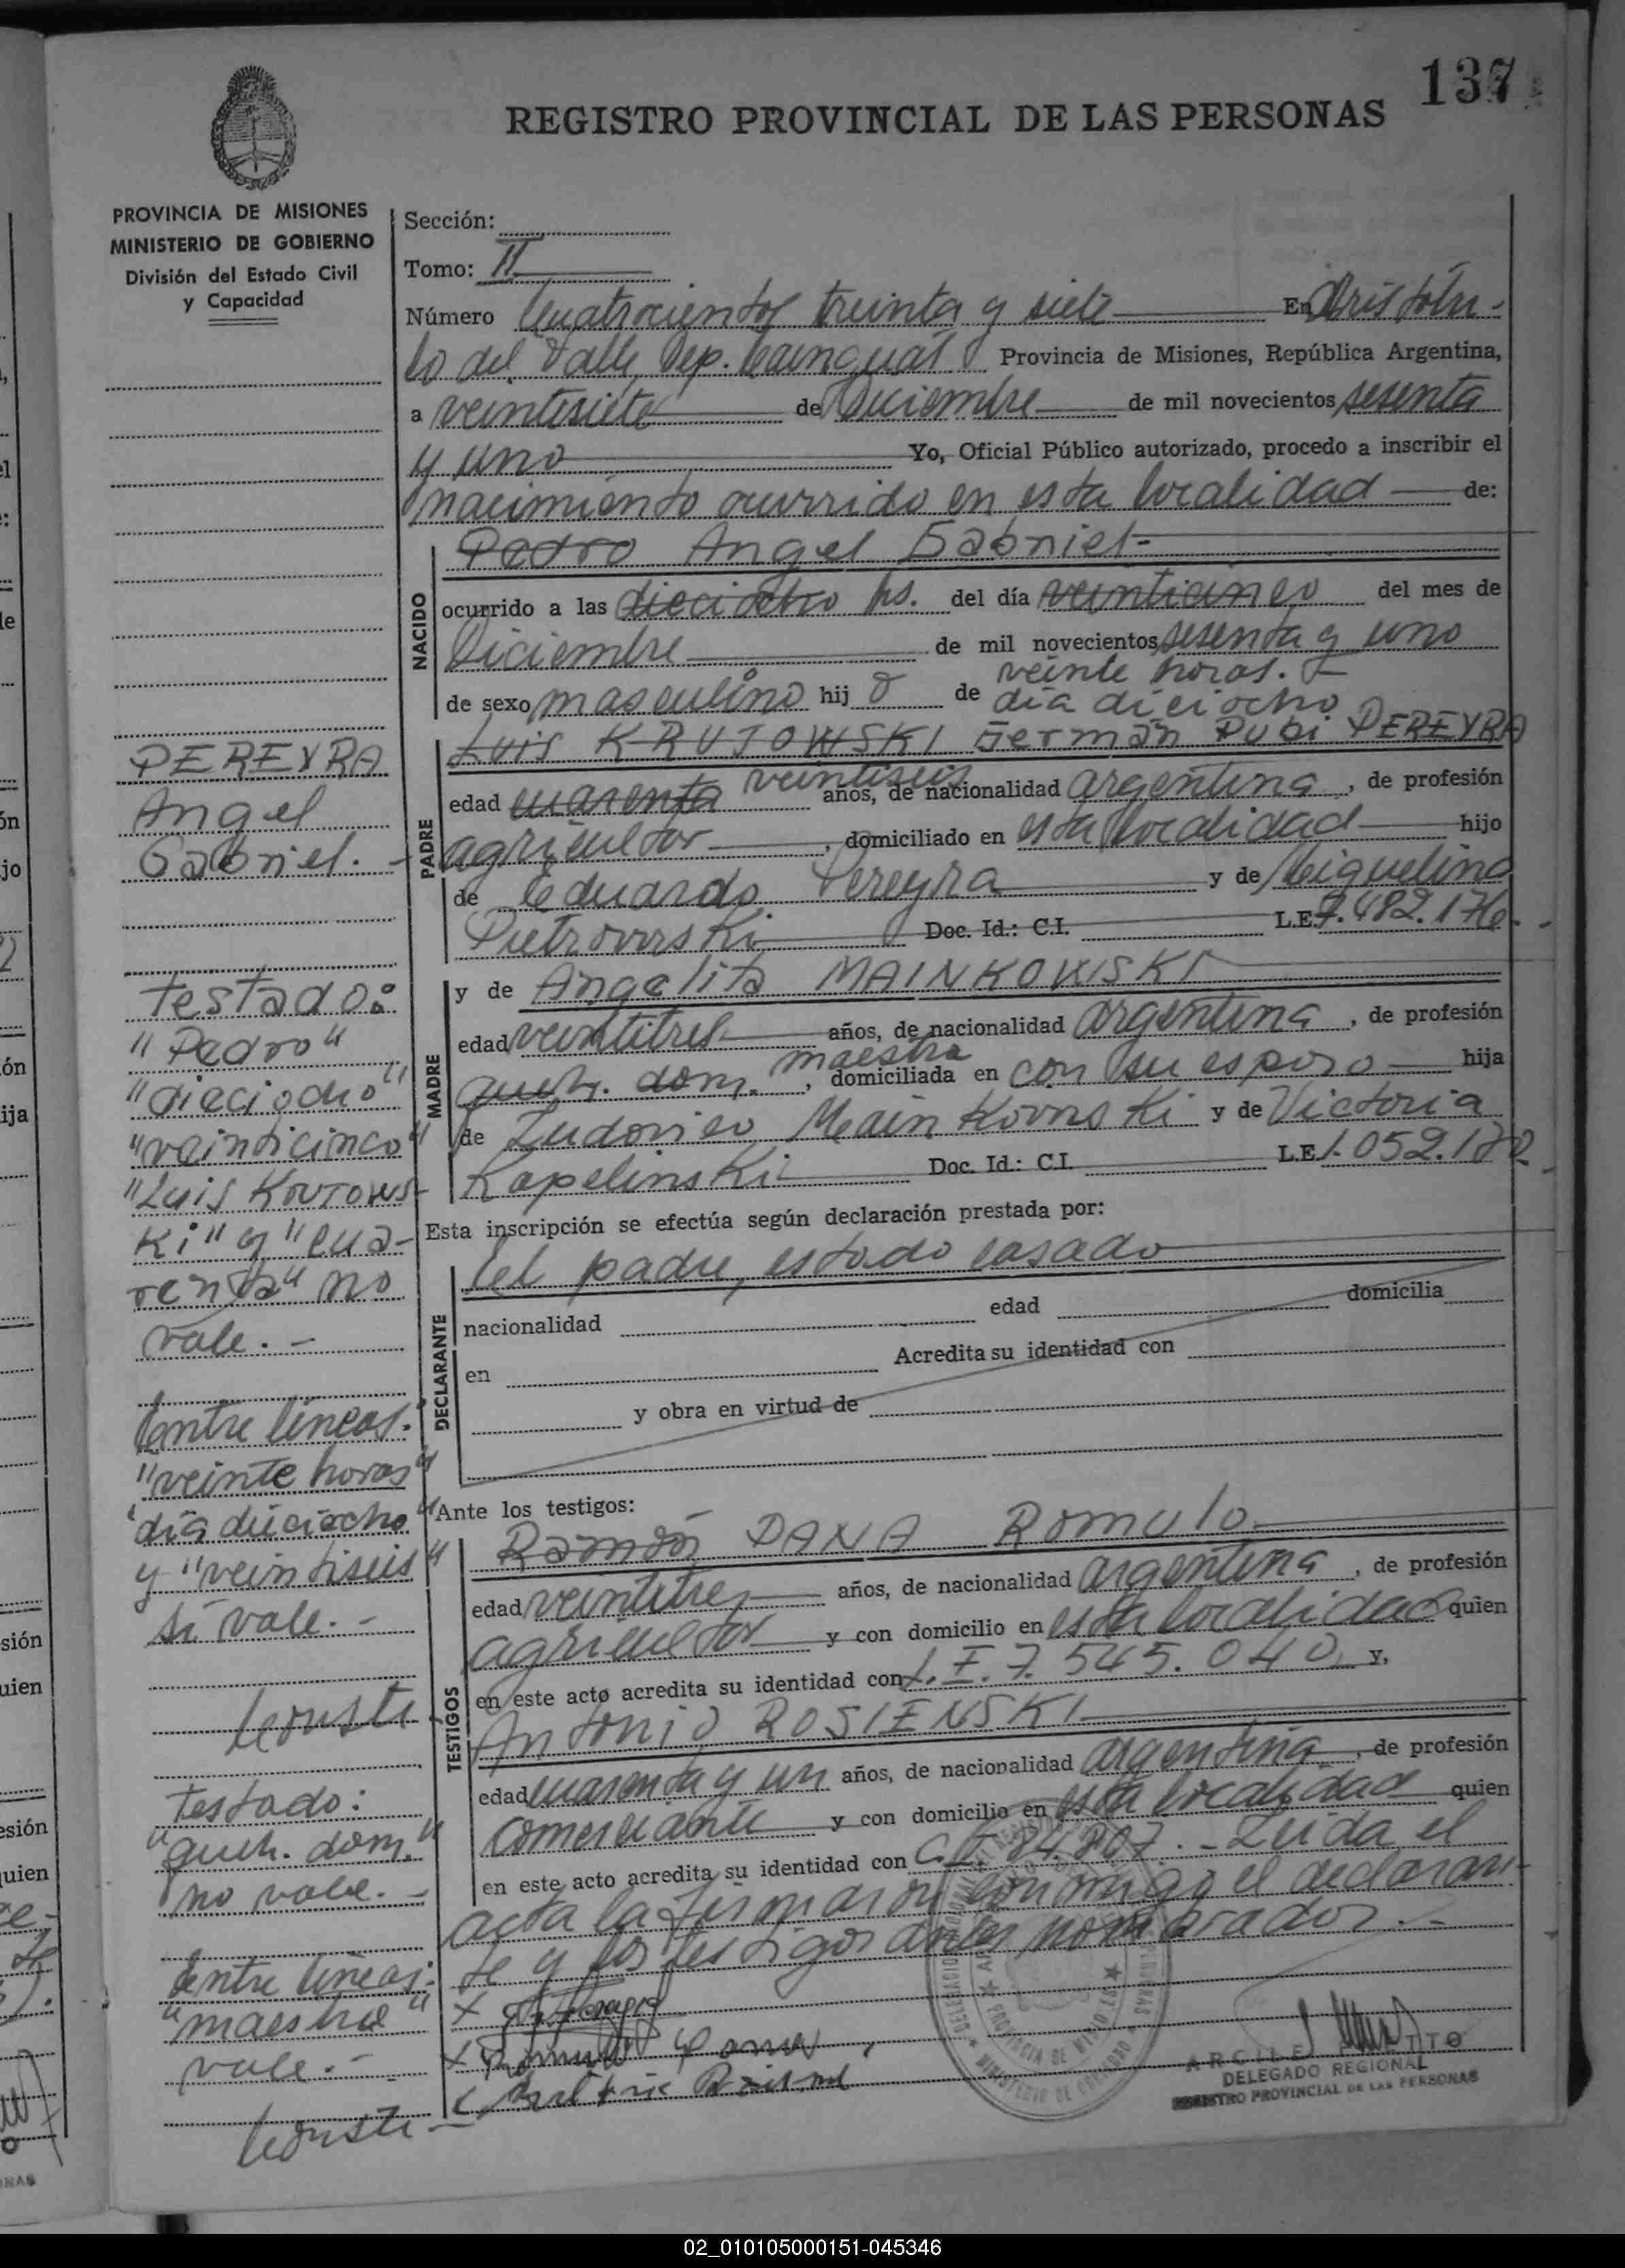 137
REGISTRO PROVINCIAL DE LAS PERSONAS
PROVINCIA DE MISIONES
MINISTERIO DE GOBIERNO
División del Estado Civil
y Capacidad
Sección:
Tomo: II
Número Cuatrocientos treinta y siete En Aristóbu-
lo del Valle, Dep. Cainguás Provincia de Misiones, República Argentina,
a veintisiete de Diciembre de mil novecientos sesenta
y uno Yo, Oficial Público autorizado, procedo a inscribir el
nacimiento ocurrido en esta localidad de:
NACIDO
Pedro Angel Gabriel
ocurrido a las dieciocho hs. del día veinticinco del mes de
Diciembre de mil novecientos sesenta y uno
veinte horas.
de sexo masculino hijo de día dieciocho
PADRE
Luis KRUTOWSKI Germán Pubi PEREYRA
veintiseis
edad cuarenta años, de nacionalidad argentina, de profesión
agricultor, domiciliado en esta localidad hijo
de Eduardo Pereyra y de Miguelina
Pietrowski Doc. Id.: C.I. L.E. 7.482.176.
MADRE
y de Angelita MAINKOWISKI
edad veintitres años, de nacionalidad argentina, de profesión
maestra
queh. dom., domiciliada en con su esposo hija
de Ludovico Mainkovnski y de Victoria
Kapelinski Doc. Id.: C.I. L.E. 1.052.170
Esta inscripción se efectúa según declaración prestada por:
DECLARANTE
el padre, estado casado
nacionalidad edad domicilia
en Acredita su identidad con
y obra en virtud de
Ante los testigos:
TESTIGOS
Ramón DANA Romulo
edad veintitres años, de nacionalidad argentina, de profesión
agricultor y con domicilio en esta localidad quien
en este acto acredita su identidad con L.E. 7.545.040 y,
Antonio ROSIENSKI
edad cuarenta y un años, de nacionalidad argentina, de profesión
comerciante y con domicilio en esta localidad quien
en este acto acredita su identidad con C.I. 84.807.- Leida el
acta la firmaron conmigo el declaran-
te y los testigos antes nombrados.-
PEREYRA
Angel
Gabriel.-
Testado:
"Pedro"
"dieciocho"
"veinticinco"
"Luis Krutows-
ki" y "cua-
renta" no
vale.-
Entre líneas:
"veinte horas"
"día dieciocho"
y "veintiseis"
sí vale.-
Conste
Testado:
"queh. dom."
no vale.-
Entre líneas:
"maestra"
vale.-
Conste
DELEGADO REGIONAL
REGISTRO PROVINCIAL DE LAS PERSONAS
02_010105000151-045346